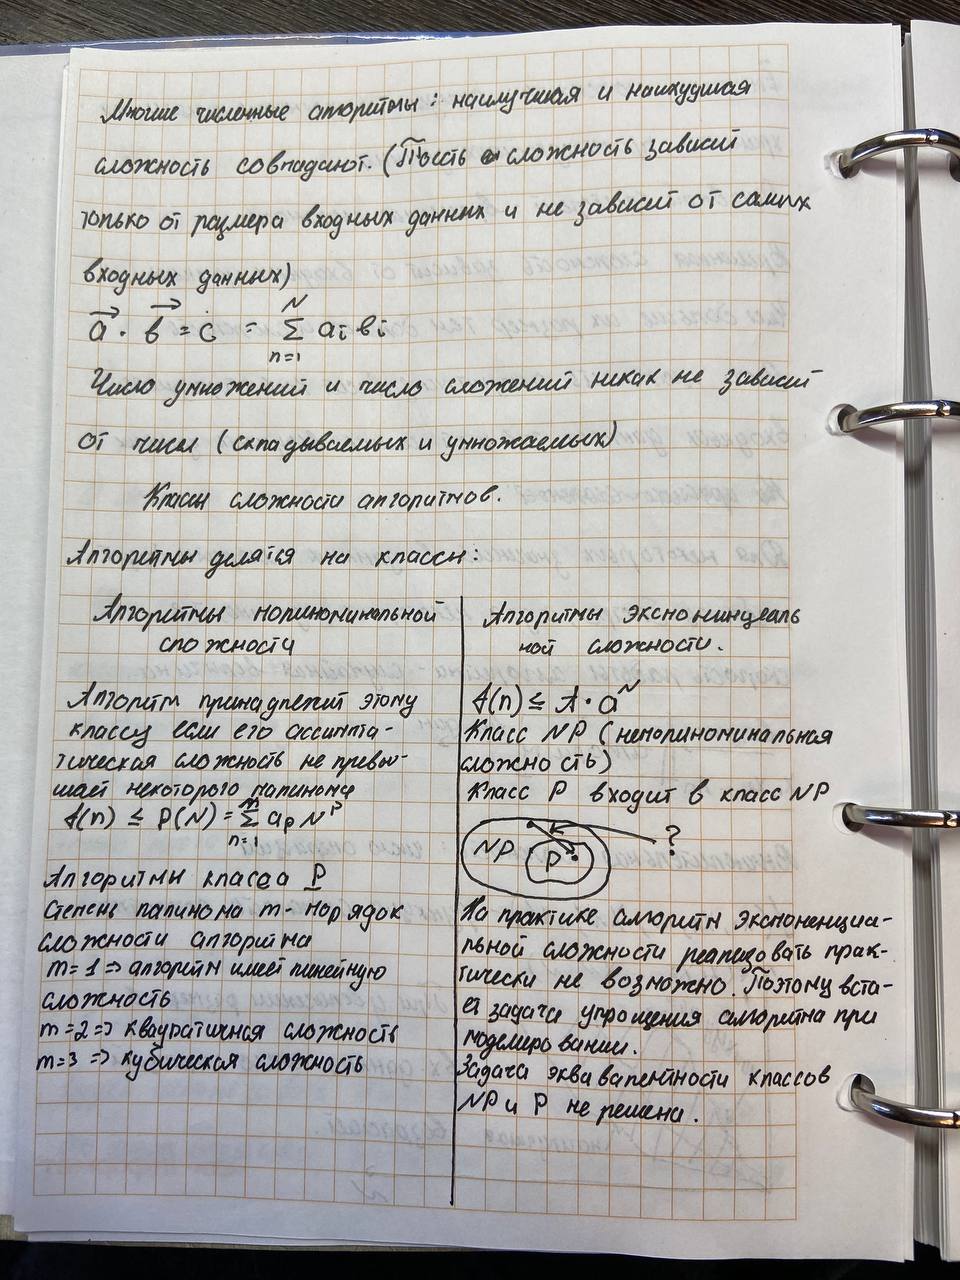 Многие численные алгоритмы: наилучшая и наихудшая
сложность совпадают. (То есть сложность зависит
только от размера входных данных и не зависит от самих
входных данных)
a · b = c = N Σ n=1 aᵢ bᵢ
Число умножений и число сложений никак не зависит
от чисел (складываемых и умножаемых)
Классы сложности алгоритмов.
Алгоритмы делятся на классы:
Алгоритмы полиноминальной
сложности
Алгоритм принадлежит этому
классу если его ассимпта-
тическая сложность не превы-
шает некоторого палинома
f(n) ≤ P(N) = m Σ n=1 aₚ Nᴾ
Алгоритмы класса P
Степень палинома m - порядок
сложности алгоритма
m = 1 => алгоритм имеет линейную
сложность
m = 2 => квадратичная сложность
m = 3 => кубическая сложность
Алгоритмы экспонинцеаль
ной сложности.
f(n) ≤ A · aᴺ
Класс NP (неполиноминальная
сложность)
Класс P входит в класс NP
NP P ?
На практике алгоритм экспоненциа-
льной сложности реализовать прак-
тически не возможно. Поэтому вста-
ет задача упрощения алгоритма при
моделировании.
Задача эквивалентности классов
NP и P не решена.